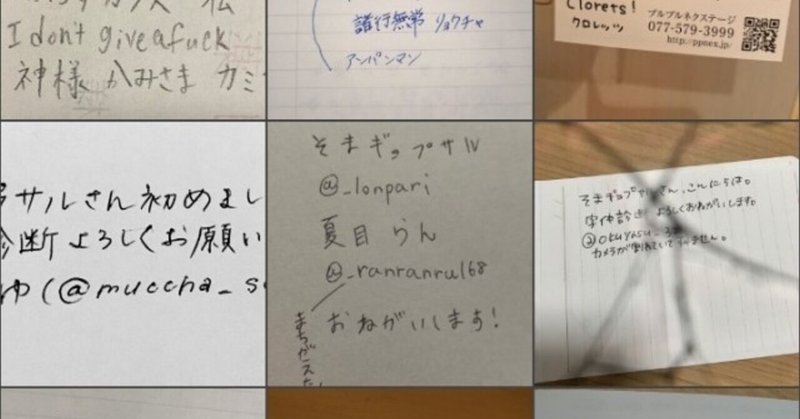 I don't give a fuck
神様 かみさま カミ
諸行無常 リョクチャ
アンパンマン
Clorets!
クロレッツ
プルプルネクステージ
077-579-3999
http://ppnex.jp/
サルさん初めまし
診断よろしくお願い
ゆ(@muccha_s
そまギップサル
@_lonpari
夏目らん
@_ranranru168
まちがえた
おねがいします!
そまギョプサルさん、こんにちは。
字体診断よろしくおねがいします。
カメラが割れていてすいません。